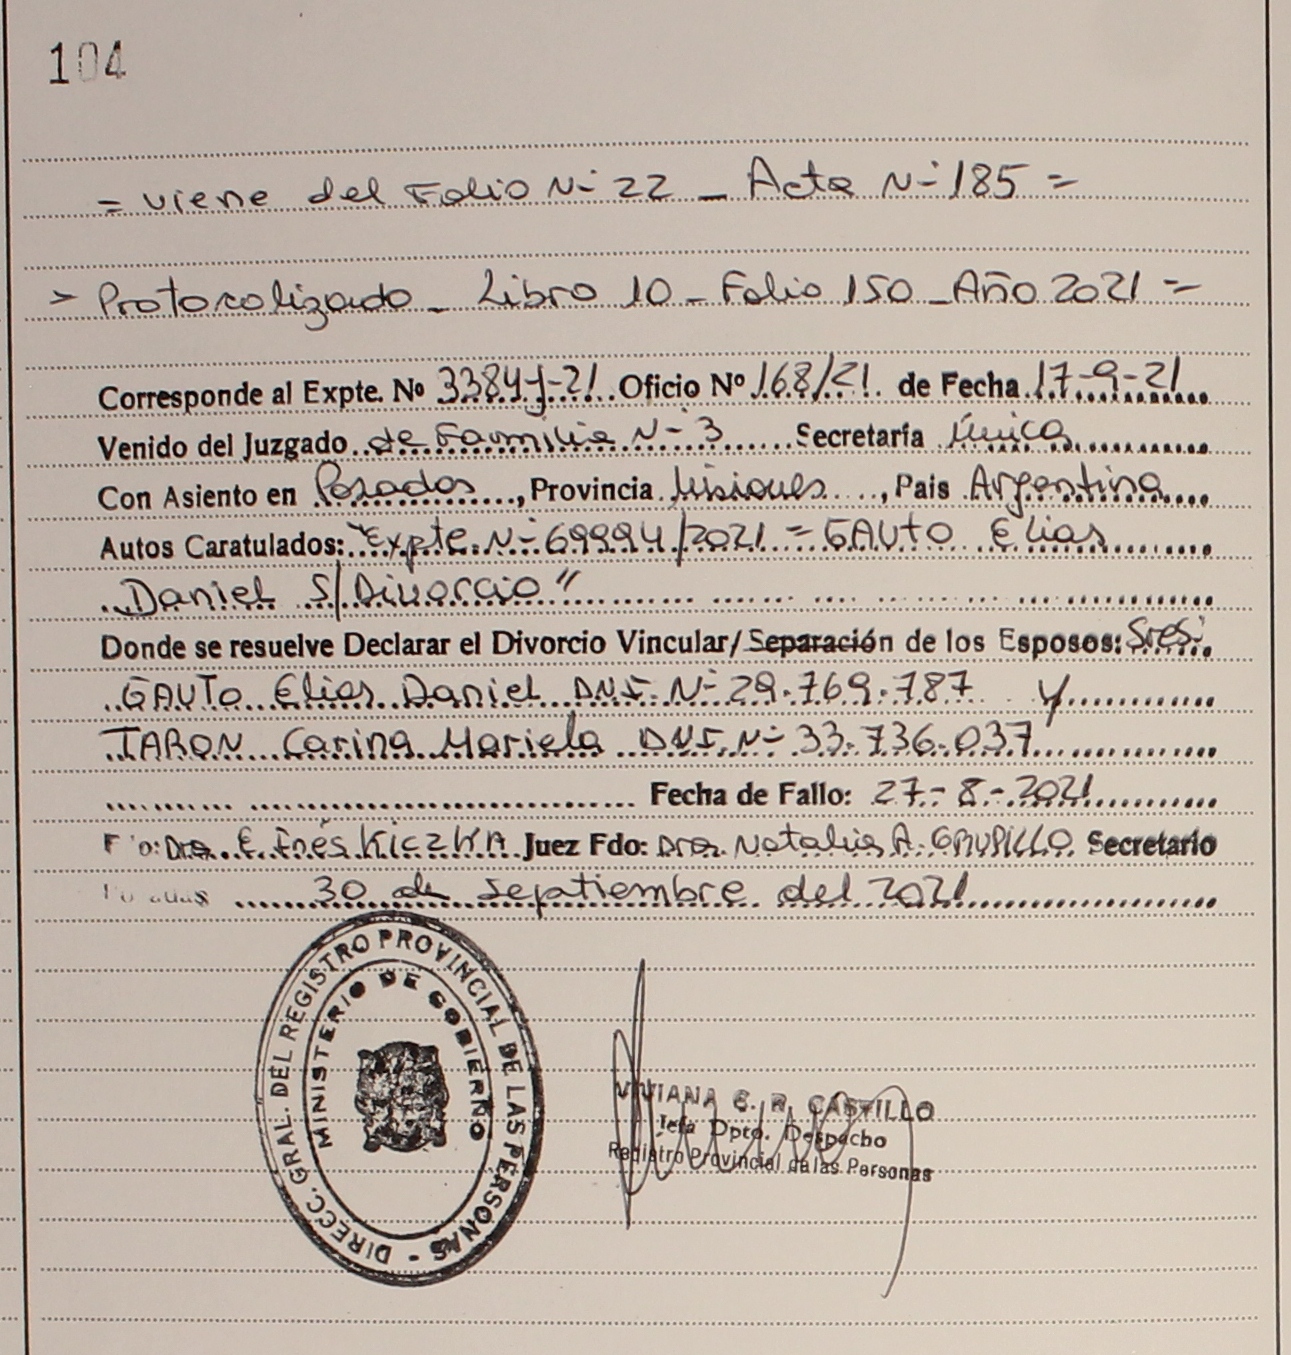 104
= viene del Folio N- 22 _ Acta N- 185 =
> Protocolizado _ Libro 10 _ Folio 150 _ Año 2021 =
Corresponde al Expte. Nº 3384-J-21 Oficio Nº 168/21 de Fecha 17-9-21
Venido del Juzgado de Familia N- 3 Secretaría Única
Con Asiento en Posadas, Provincia Misiones, Pais Argentina
Autos Caratulados: "Expte. N- 69994/2021 = GAUTO Elias
Daniel S/ Divorcio"
Donde se resuelve Declarar el Divorcio Vincular/Separación de los Esposos: Sres.
GAUTO Elias Daniel DNI. N- 29.769.787 y
TARON Carina Mariela DNI. N- 33.736.037
Fecha de Fallo: 27-8-2021
Dra. E. Inés KICZKA Juez Fdo: Dra. Natalia A. Secretario
30 de septiembre del 2021
DIRECC. GRAL. DEL REGISTRO PROVINCIAL DE LAS PERSONAS -
MINISTERIO DE GOBIERNO
VIVIANA C. R. CASTILLO
Jefa Dpto. Despacho
Registro Provincial de las Personas